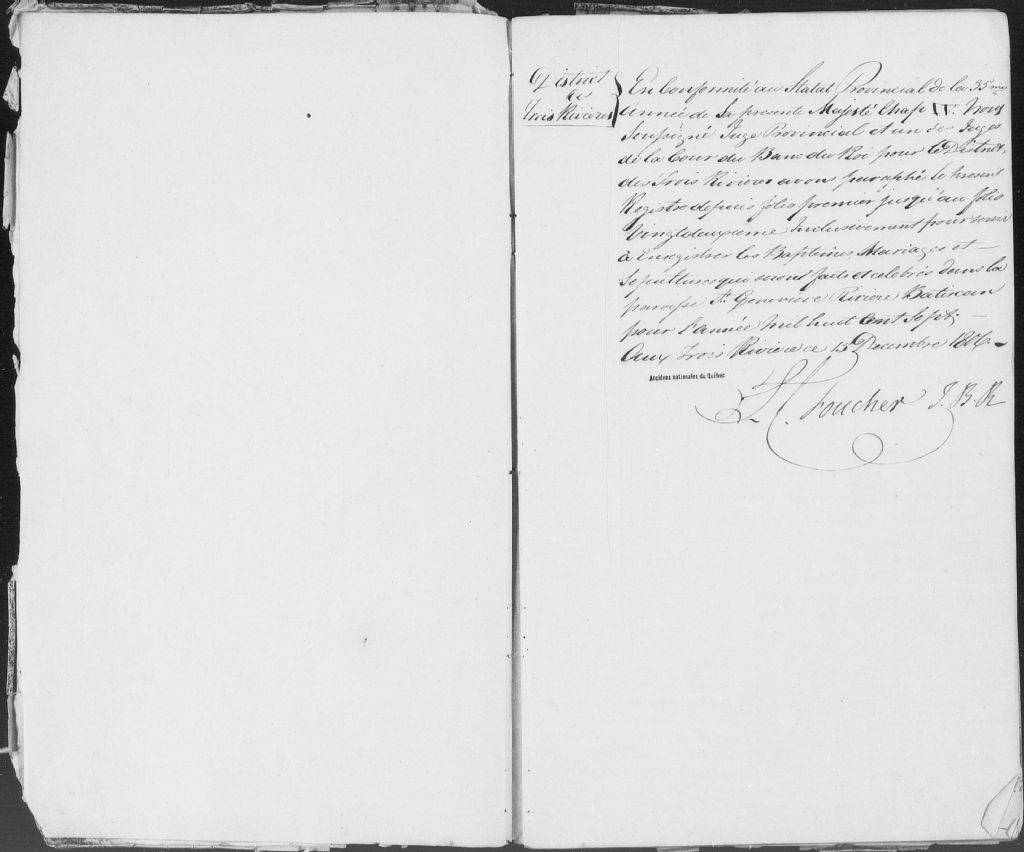 District
de
Trois Rivieres
En Conformité au Statut Provincial de la 35me
Année de Sa presente Majesté Chap IV. Nous
Soussigné Juge Provincial et un des Juges
de la Cour du Banc du Roi pour le District
des Trois Rivieres avons paraphé le present
Registre depuis folio premier jusqu'au folio
Vingtdeuxieme Inclusivement pour servir
à Enregistrer les Baptêmes Mariages et
Sepultures qui seront faits et celebrés dans la
paroisse Ste Genevieve Riviere Batiscan
pour l'année mil huit Cent Sept
Aux Trois Riviere ce 15 Decembre 1806
Archives nationales du Québec
L. C. Foucher J. B. R